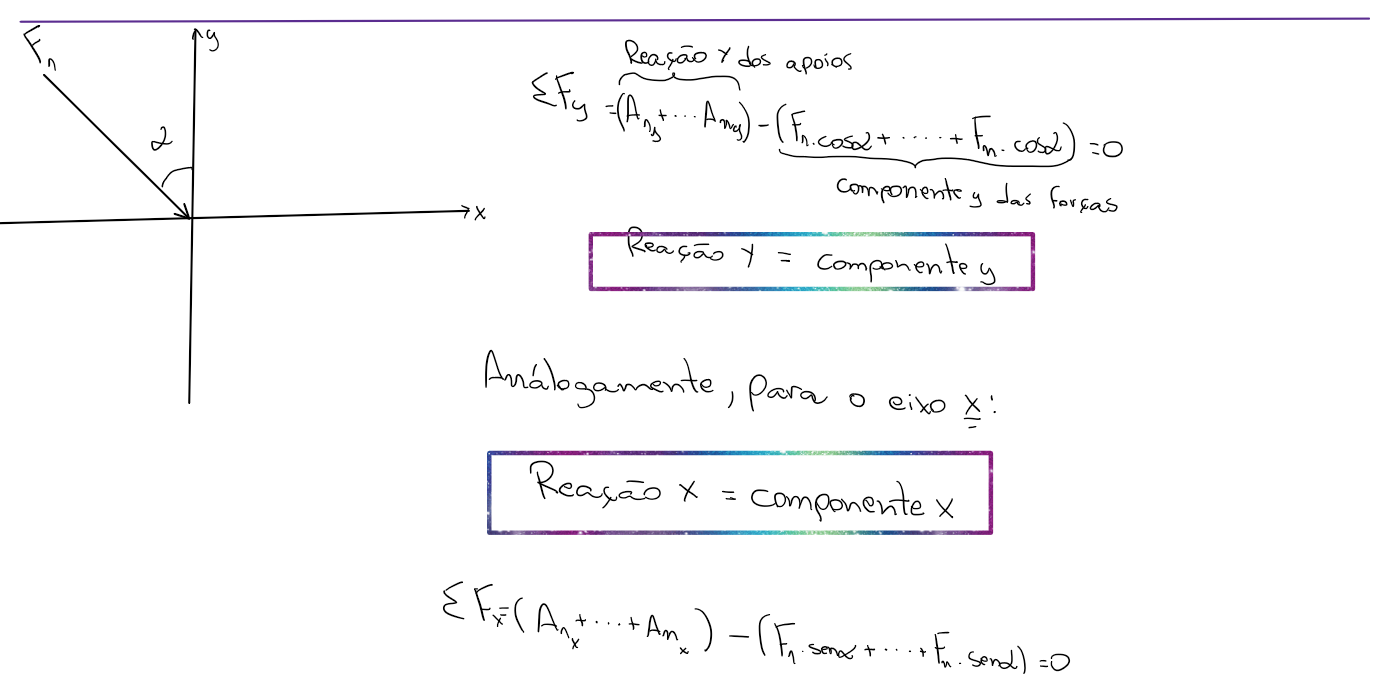 Fₙ
y
α
x
Reação Y dos apoios
ΣFy =(Aₙy+...Amy)-(Fₙ.cosα+.....+Fm.cosα)=0
componente y das forças
Reação Y = componente y
Análogamente, para o eixo x:
Reação X = componente x
ΣFx=(Aₙx+...+Amx)-(Fₙ.senα+...+Fm.senα)=0